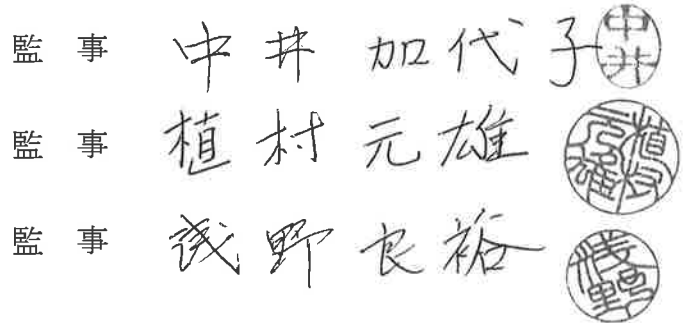 監 事 中井 加代子 中井
監 事 植村 元雄 植村元雄
監 事 浅野 良裕 浅野